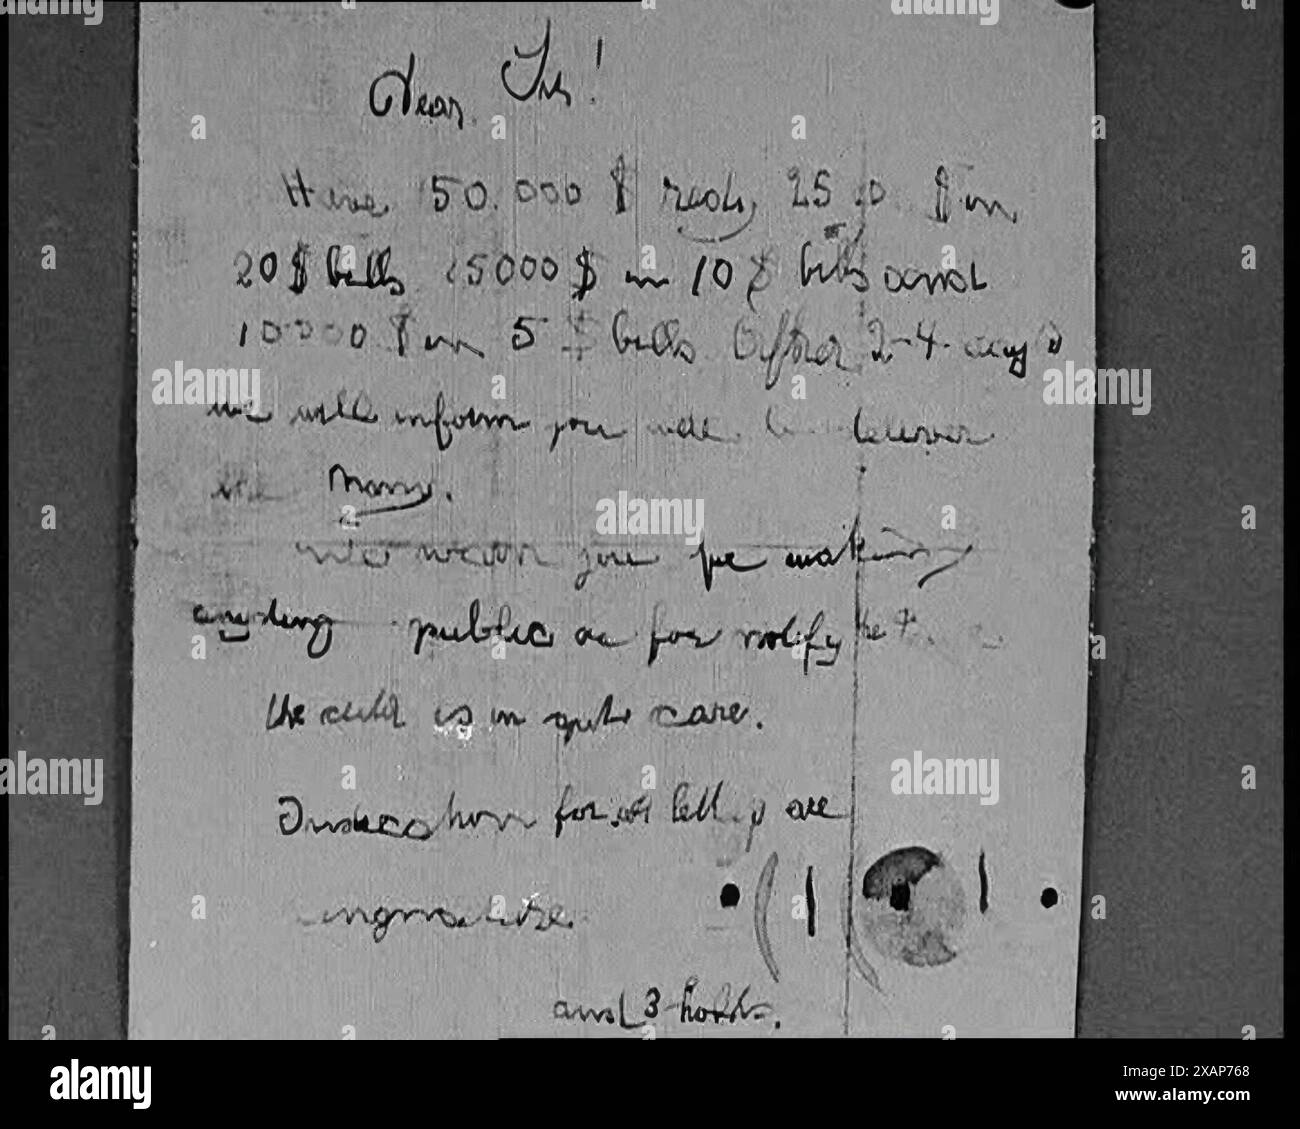 Dear Sir!
Have 50.000 $ redy 25 0 $ in
20 $ bills 15000 $ in 10 $ bills and
10000 $ in 5 $ bills After 2-4 days
we will inform you were to deliver
the Mony.
We warn you for making
anyding public or for notify the
the child is in gute care.
Indication for all letters are
singnature
and 3 holds.
alamy
alamy
alamy
alamy
alamy
alamy
alamy
a
a
a
a
a
a
a
a
a
a
a
a
a
a
alamy
Image ID: 2XAP768
www.alamy.com